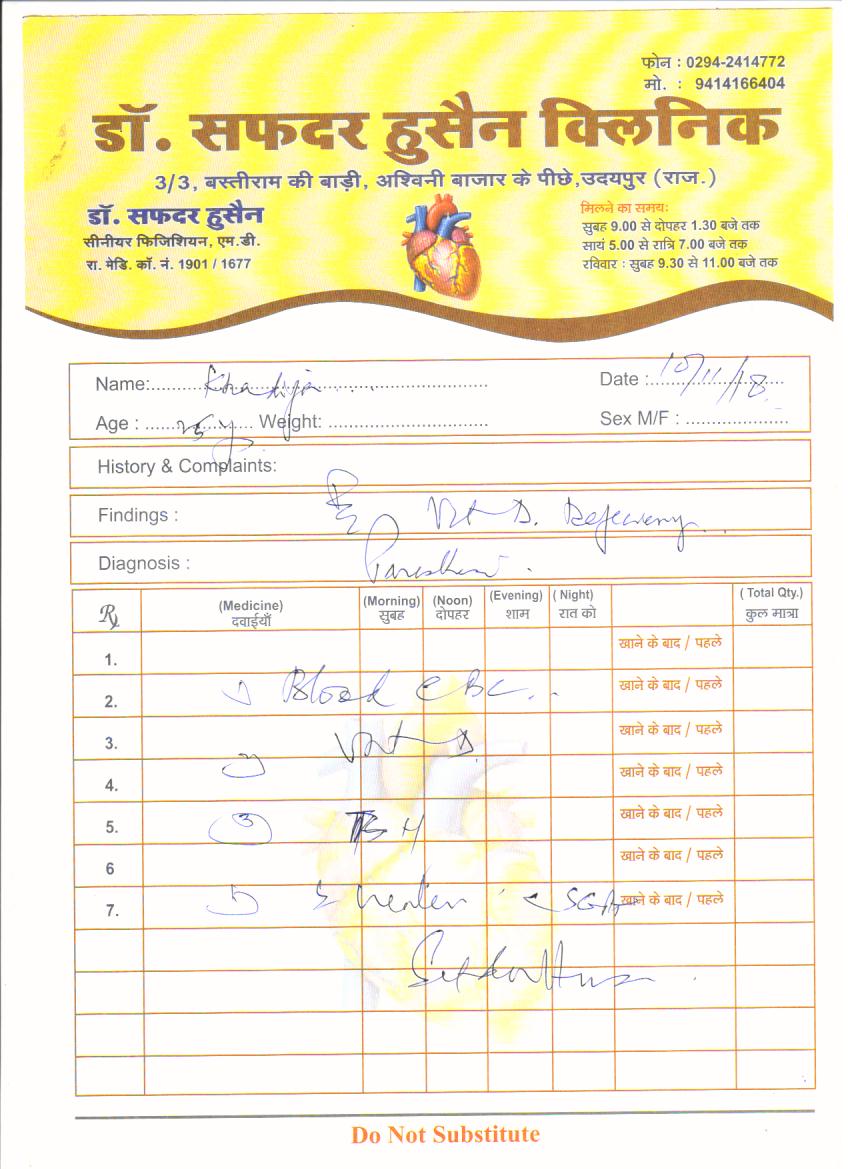 फोन : 0294-2414772
मो. : 9414166404
डॉ. सफदर हुसैन क्लिनिक
3/3, बस्तीराम की बाड़ी, अश्विनी बाजार के पीछे,उदयपुर (राज.)
डॉ. सफदर हुसैन
सीनीयर फिजिशियन, एम.डी.
रा. मेडि. कॉ. नं. 1901 / 1677
मिलने का समय:
सुबह 9.00 से दोपहर 1.30 बजे तक
सायं 5.00 से रात्रि 7.00 बजे तक
रविवार : सुबह 9.30 से 11.00 बजे तक
Name:.... Khadija .... Date :.... 10/11/18
Age : .... Weight: .... Sex M/F : ....
History & Complaints:
Findings : Vit D.
Diagnosis :
Rx (Medicine) (Morning) (Noon) (Evening) ( Night) ( Total Qty.)
दवाईयाँ सुबह दोपहर शाम रात को कुल मात्रा
1. खाने के बाद / पहले
2. Blood CBC.. खाने के बाद / पहले
3. Vit D. खाने के बाद / पहले
4. खाने के बाद / पहले
5. TSH खाने के बाद / पहले
6 खाने के बाद / पहले
7. खाने के बाद / पहले
Do Not Substitute